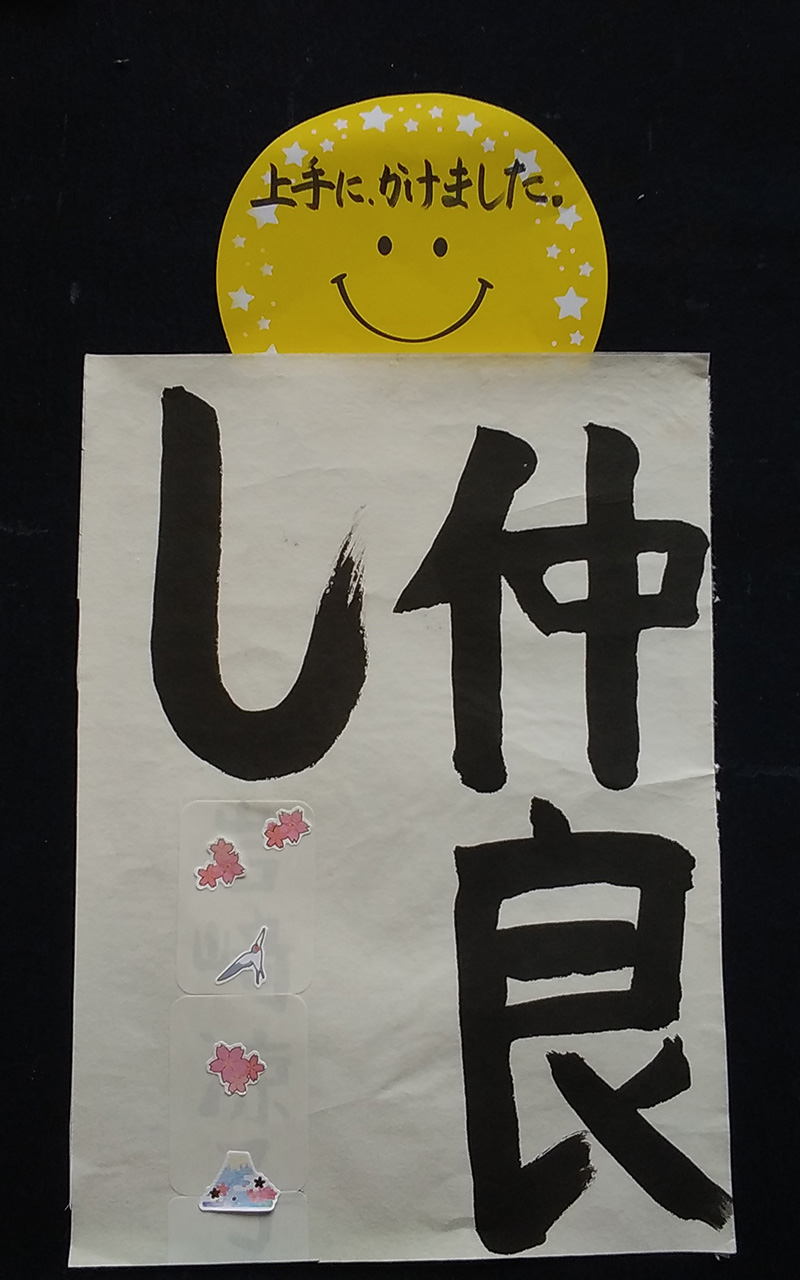 上手に、かけました。
仲良
し